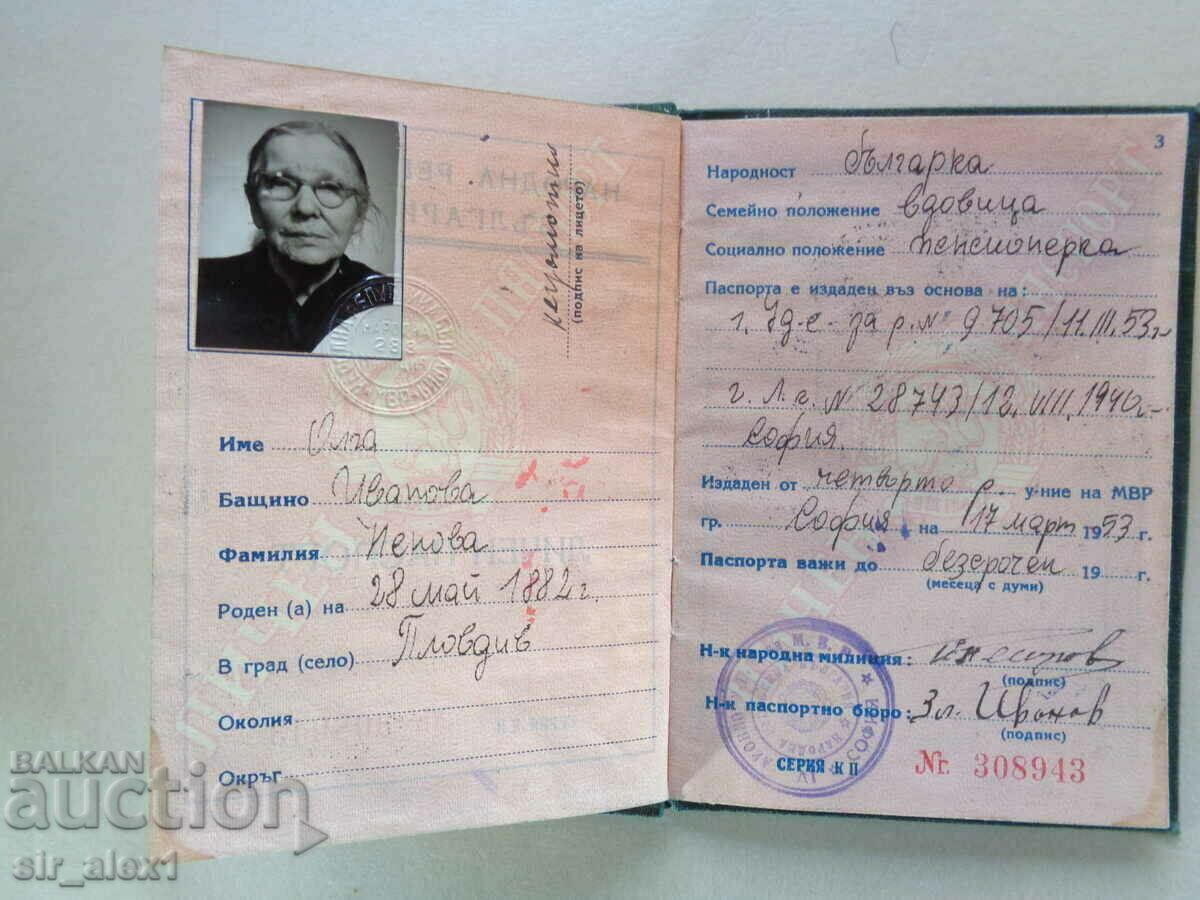 НАРОДНА РЕ
БЪЛГАР
(подпис на лицето)
Име Олга
Бащино Иванова
Фамилия Пенова
Роден (а) на 28 май 1882 г.
В град (село) Пловдив
Околия
Окръг
3
Народност българка
Семейно положение вдовица
Социално положение пенсионерка
Паспорта е издаден въз основа на:
г. Уд-е за р. № 9705/11.III.53 г.
г. Л.г. № 28743/12.VIII.1940 г.
София.
Издаден от четвърто р. у-ние на МВР
гр. София на 17 март 1953 г.
Паспорта важи до безсрочен 19 г.
(месеца с думи)
Н-к народна милиция:
(подпис)
Н-к паспортно бюро: Зл.
(подпис)
СЕРИЯ КП
Nr. 308943
BALKAN
auction
sir_alex1